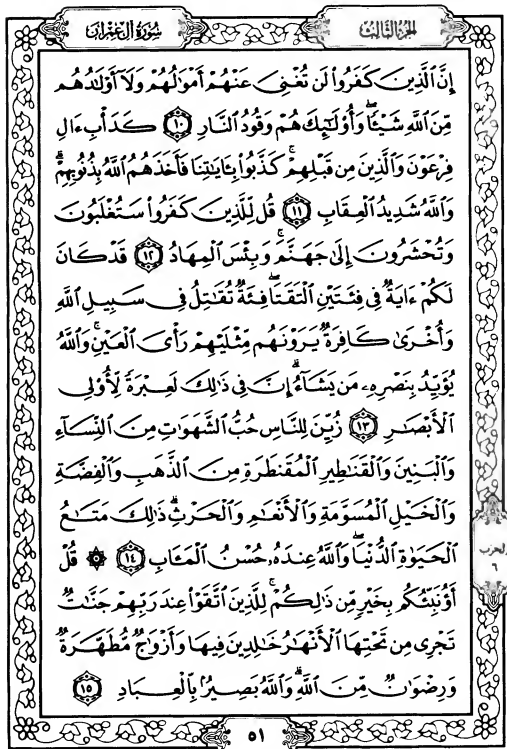 الجزء الثالث
سورة آل عمران
إِنَّ ٱلَّذِينَ كَفَرُواْ لَن تُغْنِىَ عَنْهُمْ أَمْوَٰلُهُمْ وَلَآ أَوْلَٰدُهُم
مِّنَ ٱللَّهِ شَيْـًٔا ۖ وَأُوْلَٰٓئِكَ هُمْ وَقُودُ ٱلنَّارِ ١٠ كَدَأْبِ ءَالِ
فِرْعَوْنَ وَٱلَّذِينَ مِن قَبْلِهِمْ ۚ كَذَّبُواْ بِـَٔايَٰتِنَا فَأَخَذَهُمُ ٱللَّهُ بِذُنُوبِهِمْ ۗ
وَٱللَّهُ شَدِيدُ ٱلْعِقَابِ ١١ قُل لِّلَّذِينَ كَفَرُواْ سَتُغْلَبُونَ
وَتُحْشَرُونَ إِلَىٰ جَهَنَّمَ ۚ وَبِئْسَ ٱلْمِهَادُ ١٢ قَدْ كَانَ
لَكُمْ ءَايَةٌ فِى فِئَتَيْنِ ٱلْتَقَتَا ۖ فِئَةٌ تُقَٰتِلُ فِى سَبِيلِ ٱللَّهِ
وَأُخْرَىٰ كَافِرَةٌ يَرَوْنَهُم مِّثْلَيْهِمْ رَأْىَ ٱلْعَيْنِ ۚ وَٱللَّهُ
يُؤَيِّدُ بِنَصْرِهِۦ مَن يَشَآءُ ۗ إِنَّ فِى ذَٰلِكَ لَعِبْرَةً لِّأُوْلِى
ٱلْأَبْصَٰرِ ١٣ زُيِّنَ لِلنَّاسِ حُبُّ ٱلشَّهَوَٰتِ مِنَ ٱلنِّسَآءِ
وَٱلْبَنِينَ وَٱلْقَنَٰطِيرِ ٱلْمُقَنطَرَةِ مِنَ ٱلذَّهَبِ وَٱلْفِضَّةِ
وَٱلْخَيْلِ ٱلْمُسَوَّمَةِ وَٱلْأَنْعَٰمِ وَٱلْحَرْثِ ۗ ذَٰلِكَ مَتَٰعُ
ٱلْحَيَوٰةِ ٱلدُّنْيَا ۖ وَٱللَّهُ عِندَهُۥ حُسْنُ ٱلْمَـَٔابِ ١٤ ۞ قُلْ
أَؤُنَبِّئُكُم بِخَيْرٍ مِّن ذَٰلِكُمْ ۚ لِلَّذِينَ ٱتَّقَوْاْ عِندَ رَبِّهِمْ جَنَّٰتٌ
تَجْرِى مِن تَحْتِهَا ٱلْأَنْهَٰرُ خَٰلِدِينَ فِيهَا وَأَزْوَٰجٌ مُّطَهَّرَةٌ
وَرِضْوَٰنٌ مِّنَ ٱللَّهِ ۗ وَٱللَّهُ بَصِيرٌۢ بِٱلْعِبَادِ ١٥
الحزب
٦
٥١